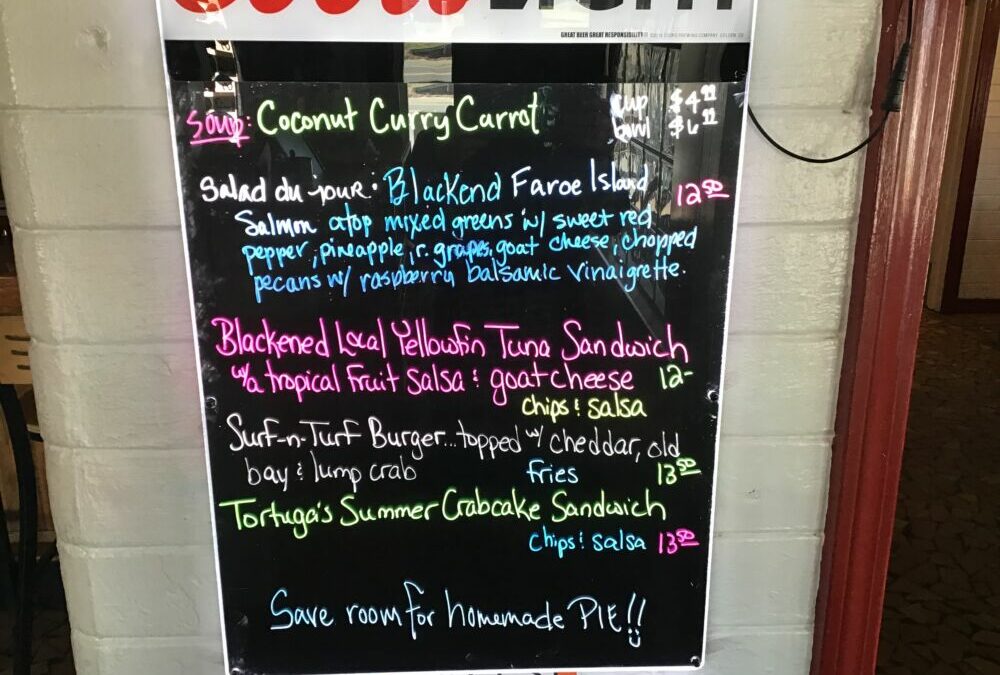 Coors LIGHT
GREAT BEER GREAT RESPONSIBILITY
Soup: Coconut Curry Carrot cup $4
bowl $6
Salad du jour: Blackend Faroe Island 12 50
Salmon atop mixed greens w/ sweet red
pepper, pineapple, r. grapes, goat cheese, chopped
pecans w/ raspberry balsamic vinaigrette.
Blackened Local Yellowfin Tuna Sandwich
w/a tropical Fruit Salsa & goat cheese 12-
chips & salsa
Surf-n-Turf Burger... topped w/ cheddar, old
bay & lump crab fries 13 50
Tortuga's Summer Crabcake Sandwich
chips & salsa 13 50
Save room for homemade PIE!!